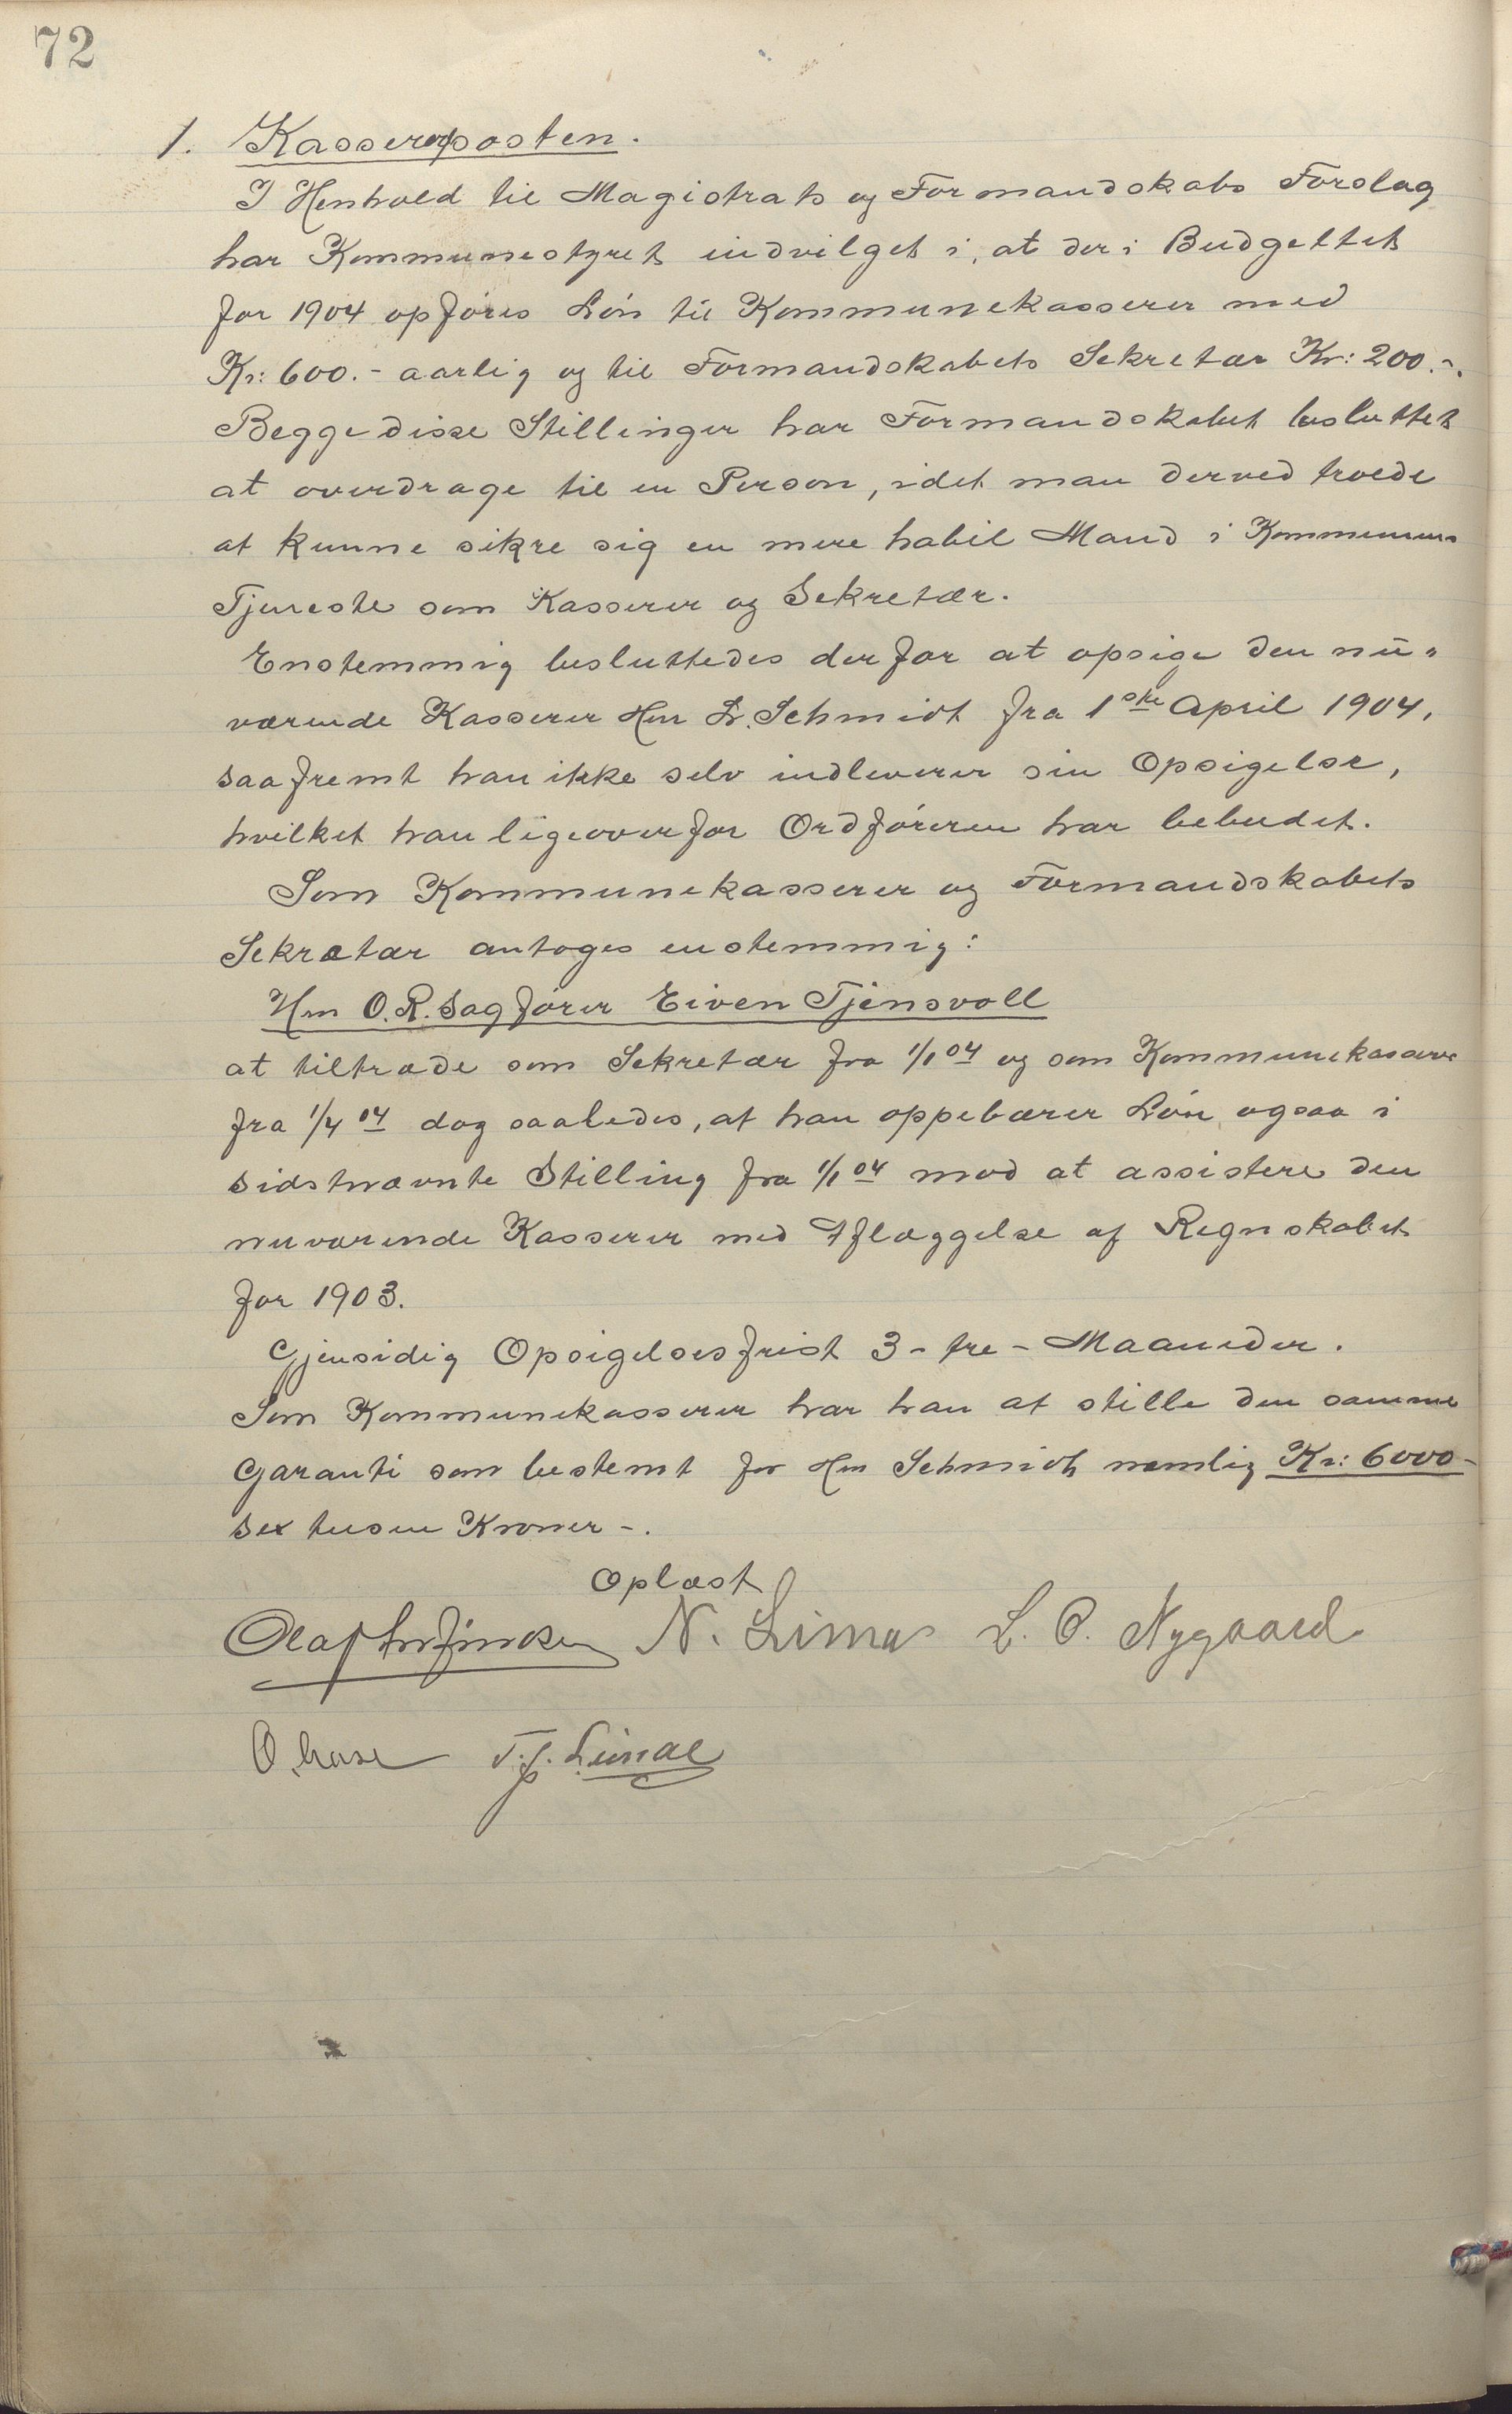 72
1. Kassererposten.
I Henhold til Magistrats og Formandskabs Forslag
har Kommunestyret indvilget i, at der i Budgettet
for 1904 opføres Løn til Kommunekasserer med
Kr: 600.- aarlig og til Formandskabets Sekretær Kr: 200.-.
Begge disse Stillinger har Formandskabet besluttet
at overdrage til en Person, idet man derved troede
at kunne sikre sig en mere habil Mand i Kommunens
Tjeneste som Kasserer og Sekretær.
Enstemmig besluttedes derfor at opsige den nu-
værende Kasserer Hrr L. Schmidt fra 1ste April 1904,
saafremt han ikke selv indleverer sin Opsigelse,
hvilket han ligeoverfor Ordføreren har bebudet.
Som Kommunekasserer og Formandskabets
Sekretær antoges enstemmig:
Hrr O.R. Sagfører Eiven Tjensvoll
at tiltræde som Sekretær fra 1/1 04 og som Kommunekasserer
fra 1/4 04 dog saaledes, at han oppebærer Løn ogsaa i
sidstnævnte Stilling fra 1/1 04 mod at assistere den
nuværende Kasserer med Aflæggelse af Regnskabet
for 1903.
Gjensidig Opsigelsesfrist 3 - tre - Maaneder.
Som Kommunekasserer har han at stille den samme
Garanti som bestemt for Hrr Schmidt nemlig Kr: 6000-
sex tusen Kroner -.
Oplæst
N. Lima L. O. Nygaard